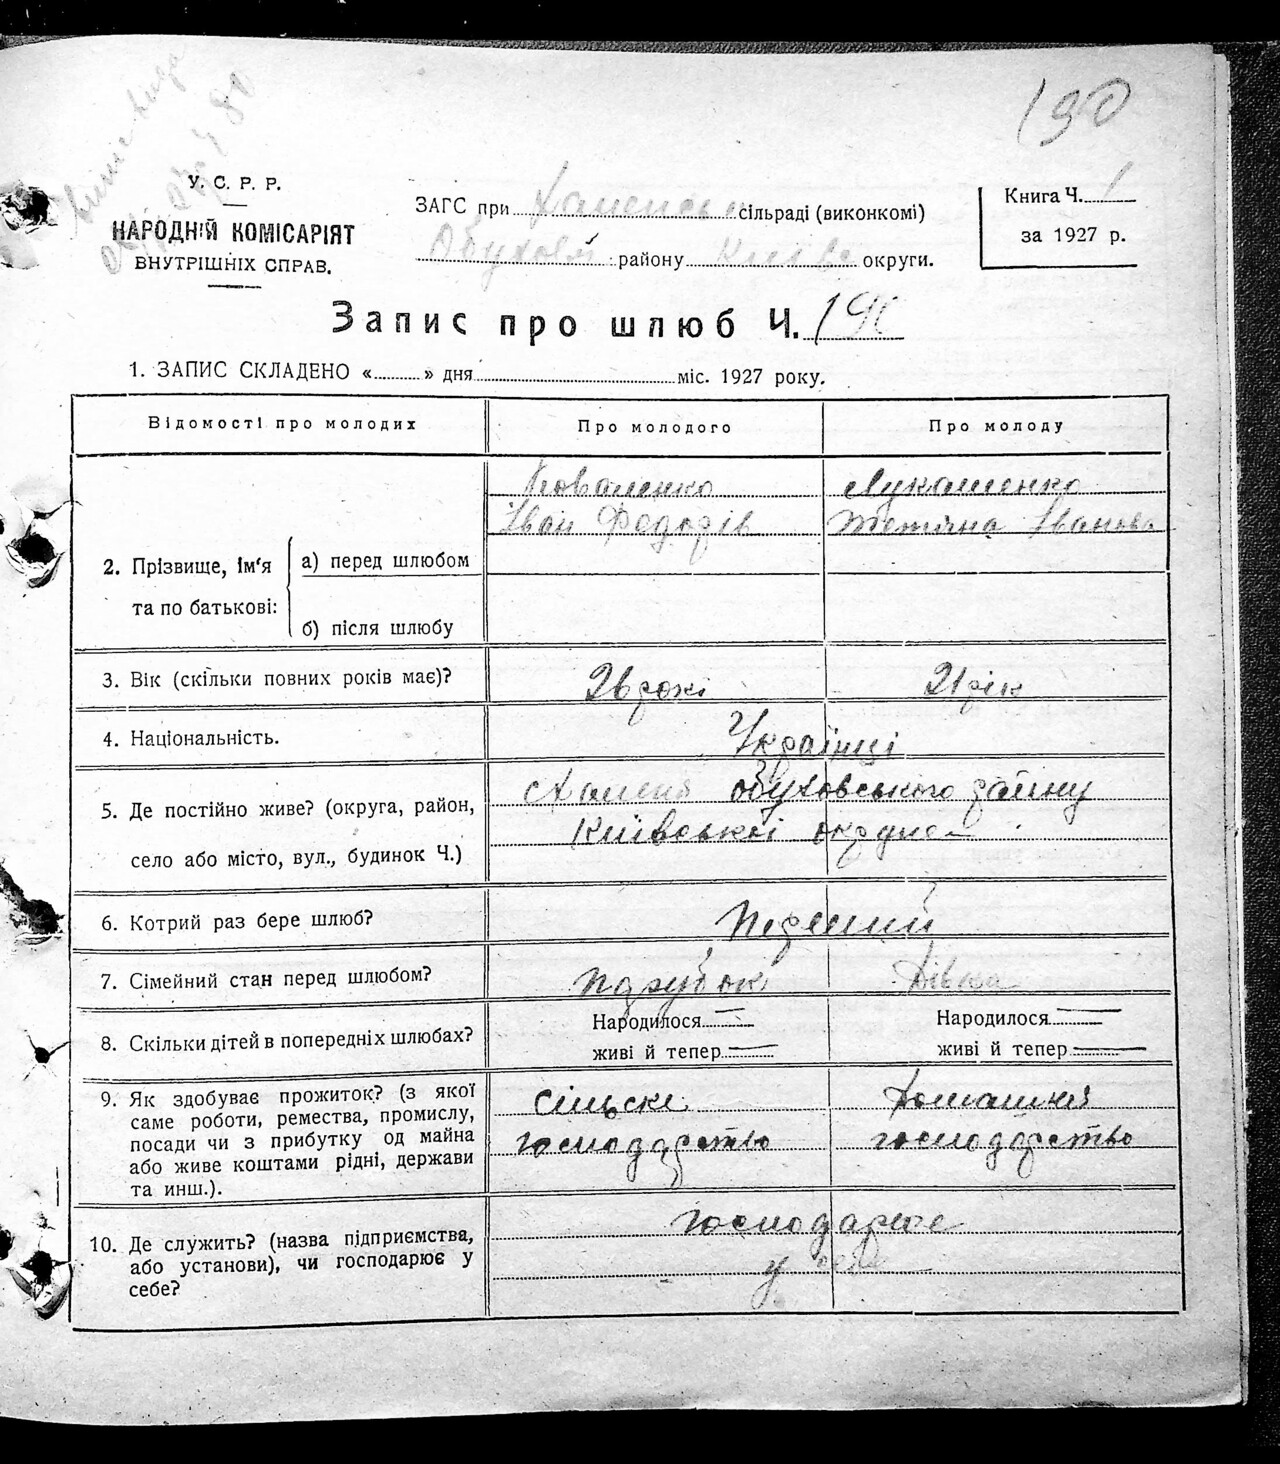 190
У. С. Р. Р.
НАРОДНІЙ КОМІСАРІЯТ
ВНУТРІШНІХ СПРАВ.
ЗАГС при сільраді (виконкомі)
Обухов району Київс округи.
Книга Ч. 1
за 1927 р.
Запис про шлюб Ч. 190
1. ЗАПИС СКЛАДЕНО «» дня міс. 1927 року.
Відомості про молодих Про молодого Про молоду
Коваленко Лукашенко
Іван Федорів Тетяна Іванова
2. Прізвище, ім'я та по батькові:
а) перед шлюбом
б) після шлюбу
3. Вік (скільки повних років має)? 26 рокі 21 рік
4. Національність. Українці
5. Де постійно живе? (округа, район, село або місто, вул., будинок Ч.)
Обуховського району
Київської округи
6. Котрий раз бере шлюб? Перший
7. Сімейний стан перед шлюбом? Парубок Дівка
8. Скільки дітей в попередніх шлюбах?
Народилося — Народилося —
живі й тепер — живі й тепер —
9. Як здобуває прожиток? (з якої
саме роботи, ремества, промислу,
посади чи з прибутку од майна
або живе коштами рідні, держави
та инш.).
Сільске Домашнє
господарство господарство
10. Де служить? (назва підприємства,
або установи), чи господарює у
себе?
господарює
у себе